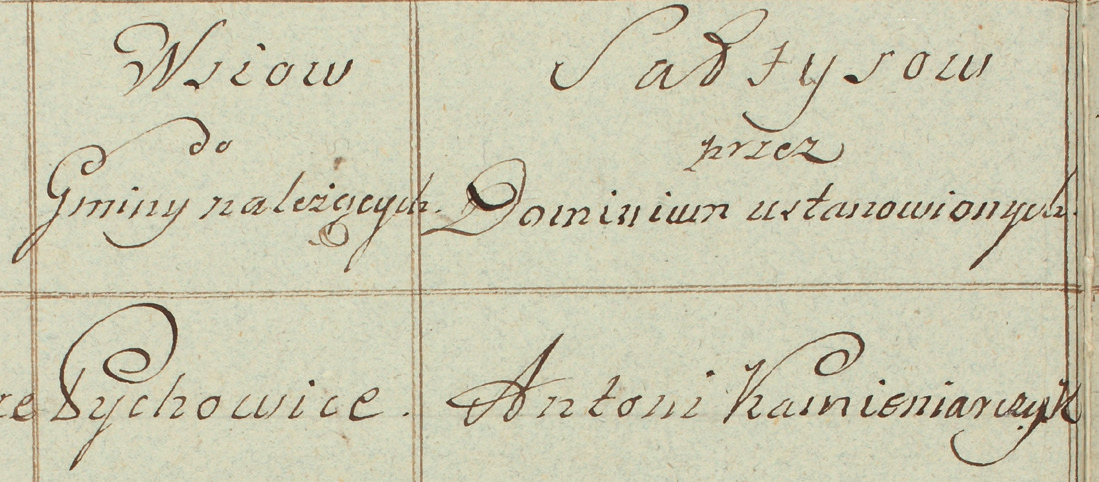 Wsiow
do
Gminy należących.
Sabłysow
przez
Dominium ustanowionych.
Pychowice.
Antoni Kamieniarczyk